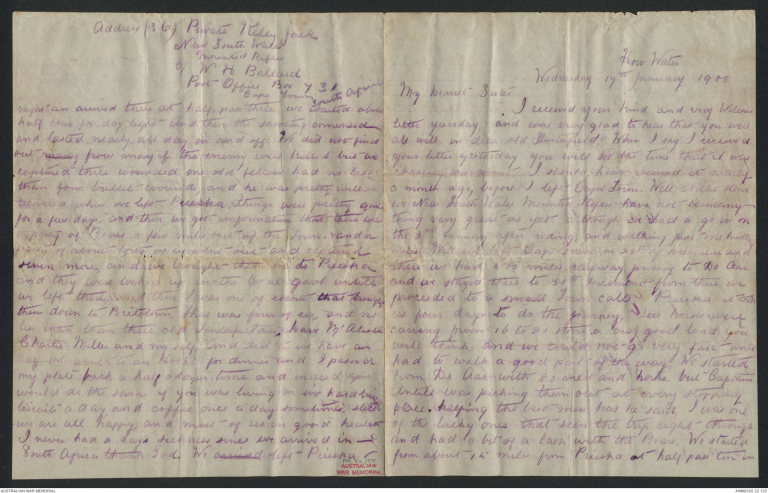 Address (36) Private Iteley Jack
New South Wales
Mounted Rifles
C/ W H Ballard
Post Office Box 731
Cape Town South Africa
How Water
Wednesday 17th January 1900
My Dearest Sister
I received your kind and very Welcome
letter yesterday and was very glad to hear that you were
all well in dear old When I say I received
your letter yesterday you will see the time that it was
chasing me about I should have received it nearly
a month ago, before I left Cape Town. Well dear
we New South Wales Mounted Rifles have not done any
thing very great as yet although we had a go in on
the 3rd January after riding, and walking for one hundred
miles. We left Cape Town, on and
there we had a 500 miles railway journey to De Aar
and we stayed there to 30th December from there we
proceeded to a small Town called Prieska it took
us four days to do the journey, our horses were
carrying from 16 to 20 stone a very good load you
will think, and we could not go very fast and
had to walk a good part of the way. We started
from De Aar with 80 men and horses but Captain
Antill was picking them out at every stopping
place. keeping the best men has he said I was one
of the lucky ones that seen the trip right through
and had a bit of a lash with the Boers. We started
from about 15 miles from Prieska at half past ten in
night an arrived there at half past three we waited about
half hour for day light and then the shooting commenced
and lasted nearly all day on and off. We did not find
out how many of the enemy were killed but we
captured three wounded one old fellow had no less
than four bullet wounds and he was pretty well
when we left Prieska, things were pretty quiet
for a few days, and then we got information that there was
a party of Boers a few miles out of the Town. and a
party of about forty of us went out and captured
seven more, and we brought them in to Prieska
and they were locked up in the local gaol until
we left there, and then I was one of escort that brought
them down to Britstown, there was four of us, and no
less than three old Hans McAlister
Charlie Miller and myself. and did not we have an
for dinner and I passed
my plate back a half a dozen times and indeed you
would do the same if you was living on one hard
biscuit a day and coffee once a day sometimes, still
we are all happy and most of us in good health
I never had a days sickness since we arrived in
South Africa thank God. We arrived left Prieska
PR 84/55
AUSTRALIAN
WAR MEMORIAL
AUSTRALIAN WAR MEMORIAL
AWM2020.22.125